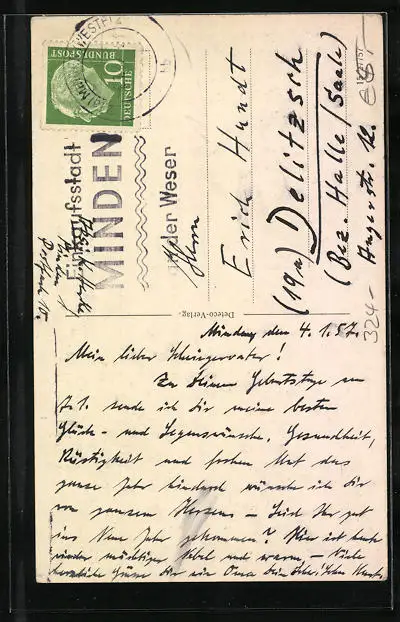 DEUTSCHE BUNDESPOST
10
MINDEN
Einkaufsstadt
MINDEN
an der Weser
Herrn
Erich Hundt
(19a) Delitzsch
(Bez. Halle/Saale)
Angerstr. 12.
Minden
Deteco-Verlag.
324-
Minden, den 4.1.57.
Mein lieber Schwiegervater!
Zu Deinem Geburtstage am
7.1. sende ich Dir meine besten
Glück- und Segenswünsche. Gesundheit,
Rüstigkeit und frohen Mut das
ganze Jahr hindurch wünsche ich Dir
von ganzem Herzen. – Seid Ihr gut
ins Neue Jahr gekommen? Hier ist heute
wieder mächtiger Nebel und warm. – Viele
herzliche Grüsse Dir und Oma Dein